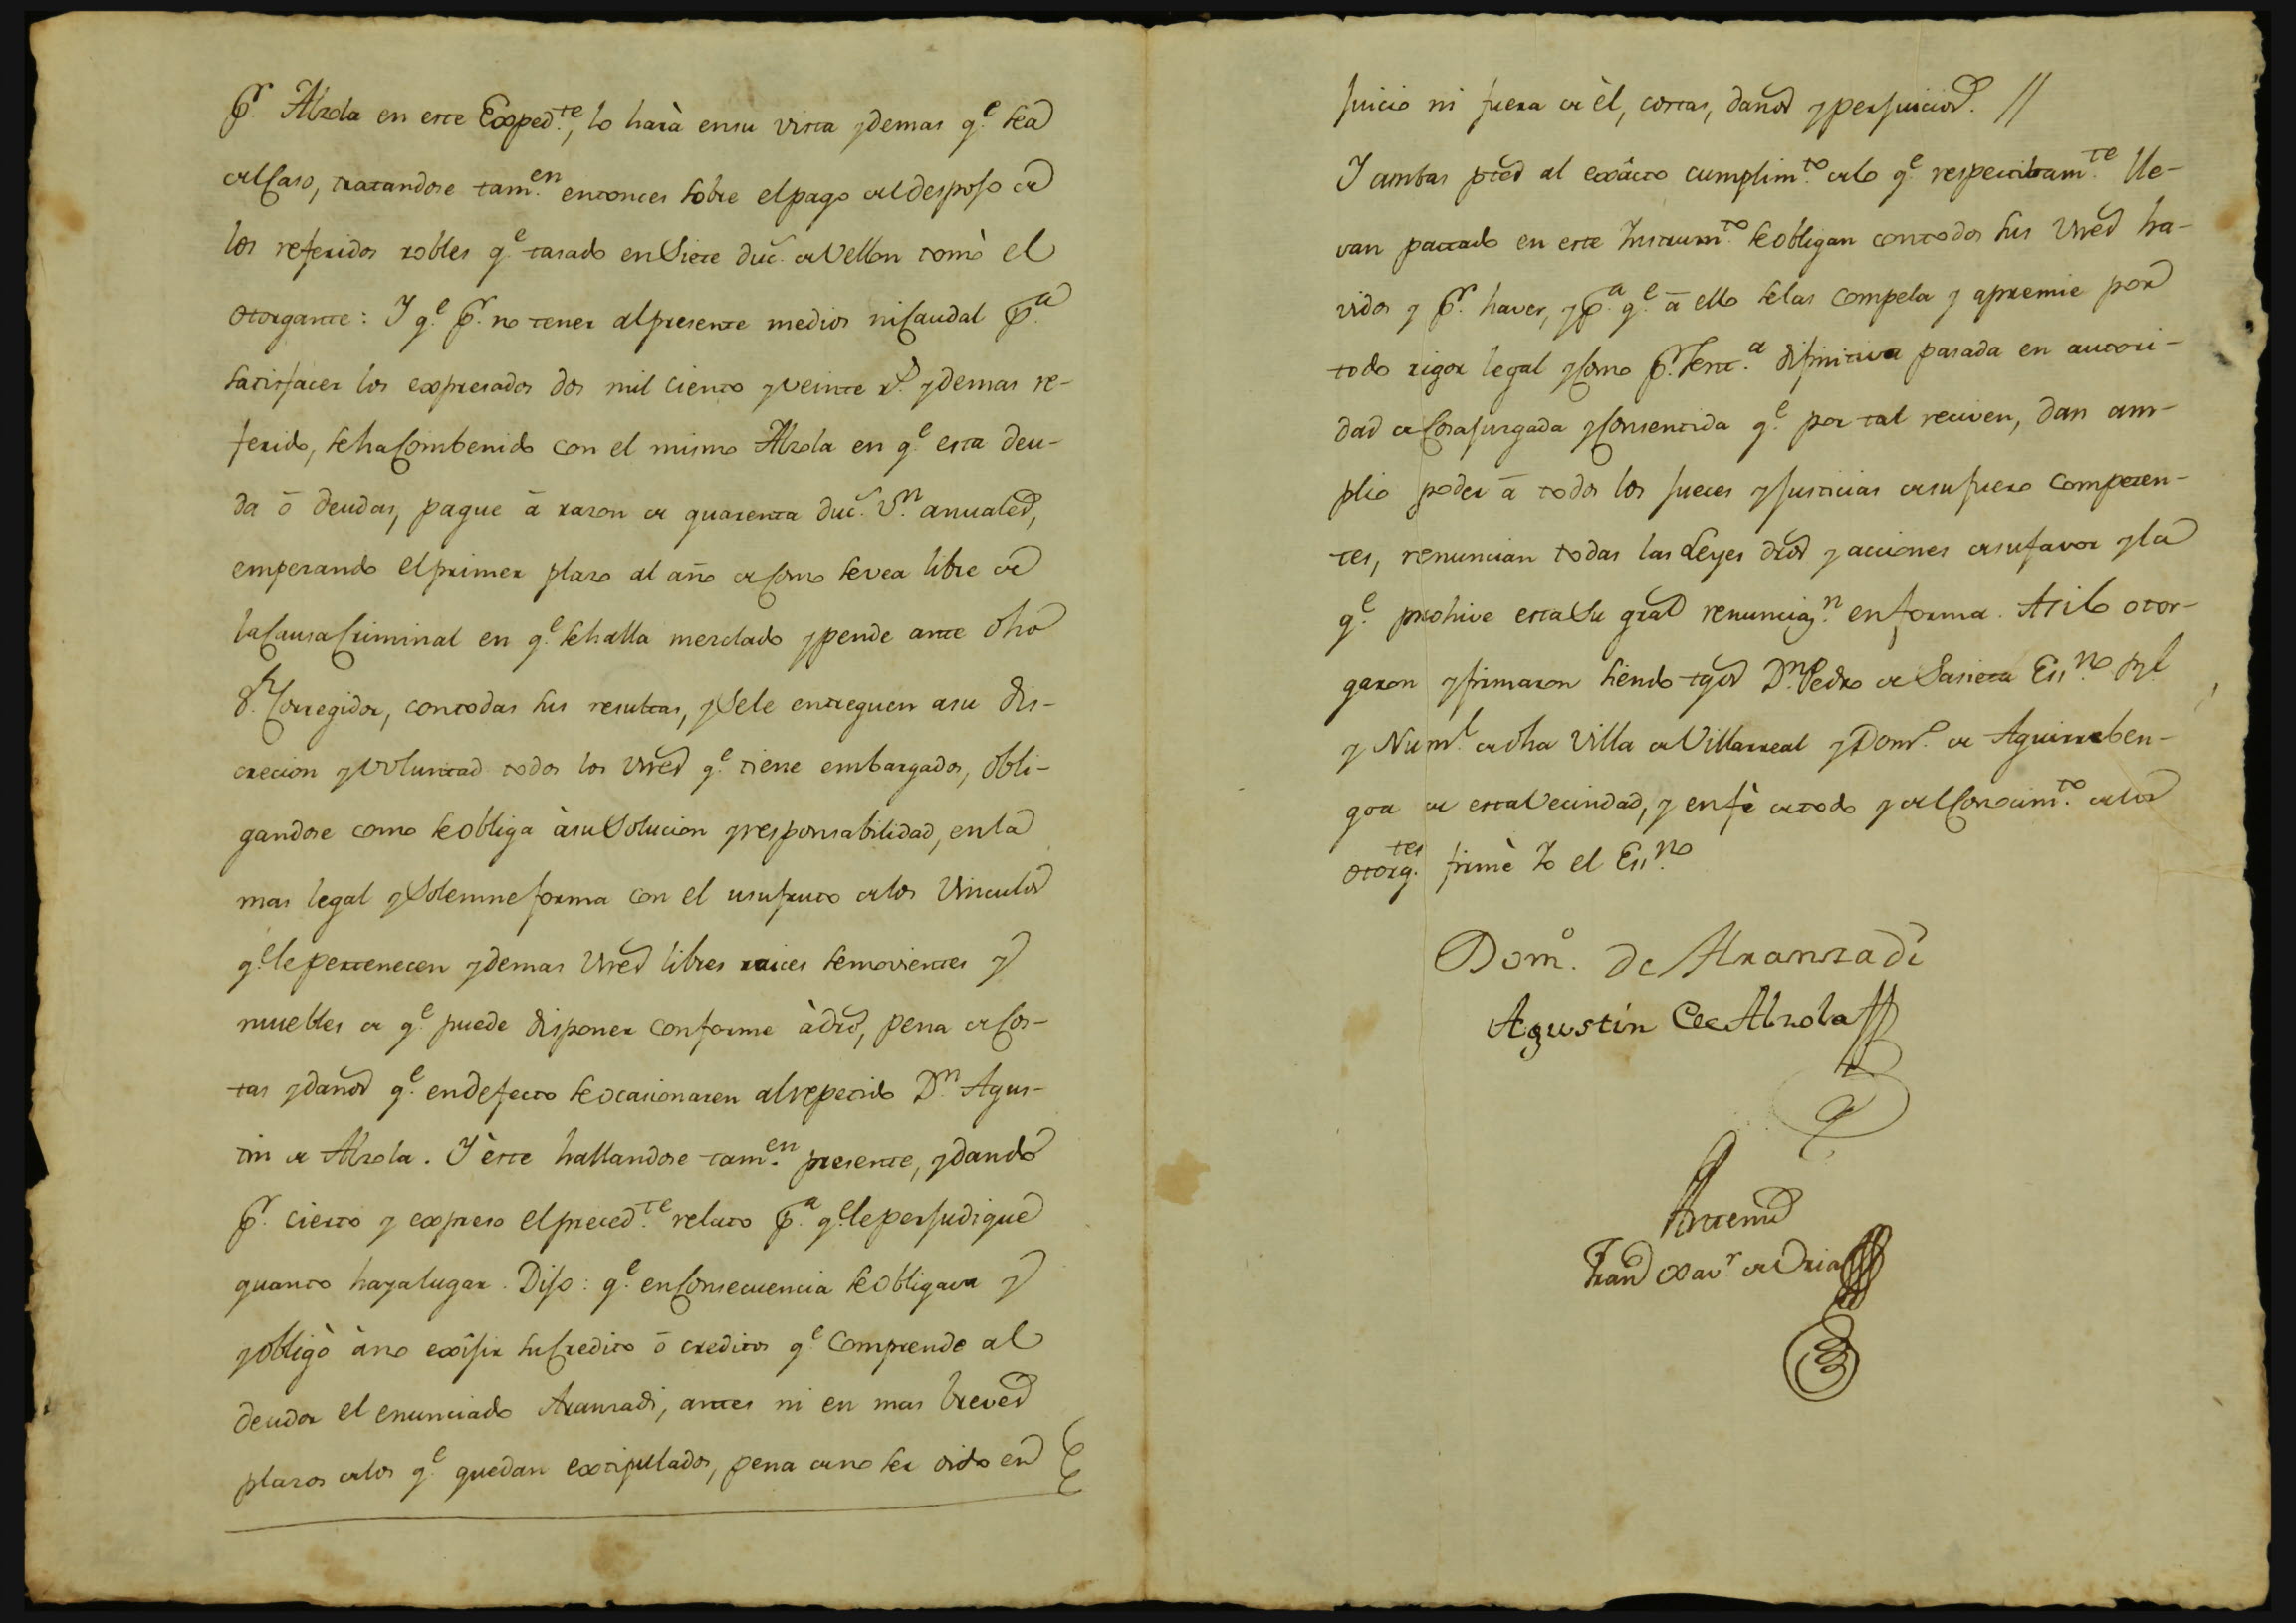 pr. Alzola en este Expedte, lo harà en su vista y demas qe. sea
del Caso, tratandose tamen. entonces sobre el pago del despojo de
los referidos robles qe. tasado en Siete duc. de Vellon tomò el
otorgante: Y qe. pr. no tener al presente medios ni Caudal pa.
satisfacer los expresados dos mil ciento y veinte rs. y demas re-
ferido, se ha Combenido con el mismo Alzola en qe. esta deu-
da ó deudas, pague á razon de quarenta duc. vn. anuales,
empezando el primer plazo al año de Como se vea libre de
la Causa Criminal en qe. se halla mezclado y pende ante dho
Sr. Corregidor, con todas sus resultas, y Se le entreguen a su dis-
crecion y voluntad todos los vnes qe. tiene embargados, obli-
gandose como se obliga à su Solucion y responsabilidad, en la
mas legal y Solemne forma con el usufruto de los Vinculos
qe. le pertenecen y demas vnes libres raices semovientes y
muebles de qe. puede disponer conforme à dro, pena de Cos-
tas y daños qe. en defecto se ocasionaren al repetido Dn. Agus-
tin de Alzola. Y èste hallandose tamen. presente, y dando
pr. cierto y expreso el precedte. relato pa. qe. le perjudique
quanto haya lugar. Dijo: qe. en Consecuencia se obligava y
y obligò à no exîjir su Credito ó creditos qe. comprende al
deudor el enunciado Aranzadi, antes ni en mas breves
plazos de los qe. quedan extipulados, pena de no ser oido en
juicio ni fuera de èl, costas, daños y perjuicios. //
Y ambas ptes al exâcto cumplimto. de lo qe. respectibamte. lle-
van pactado en este Instrumto. se obligan con todos sus vnes ha-
vidos y pr. haver, y pa. qe. á ello se las compela y apremie por
todo rigor legal y Como pr. Senta. difinitiva pasada en autori-
dad de Cosa juzgada y Consentida qe. por tal reciven, dan am-
plio poder á todos los jueces y justicias de su fuero competen-
tes, renuncian todas las Leyes dros y acciones de su favor y la
qe. prohive esta Su gral renunciazn. en forma. Asi lo otor-
garon y firmaron siendo tgos Dn. Pedro de Sasieta Essno. Rl.
y Numl. de dha Villa de Villarreal y Domo. de Aguirreben-
goa de esta Vecindad, y en fè de todo y del Conocimto. de los
otorgtes. firmè Yo el Essno.
Domo. de Aranzadi
Agustin de Alzola
Antemi
Franco Xavr. de Oria